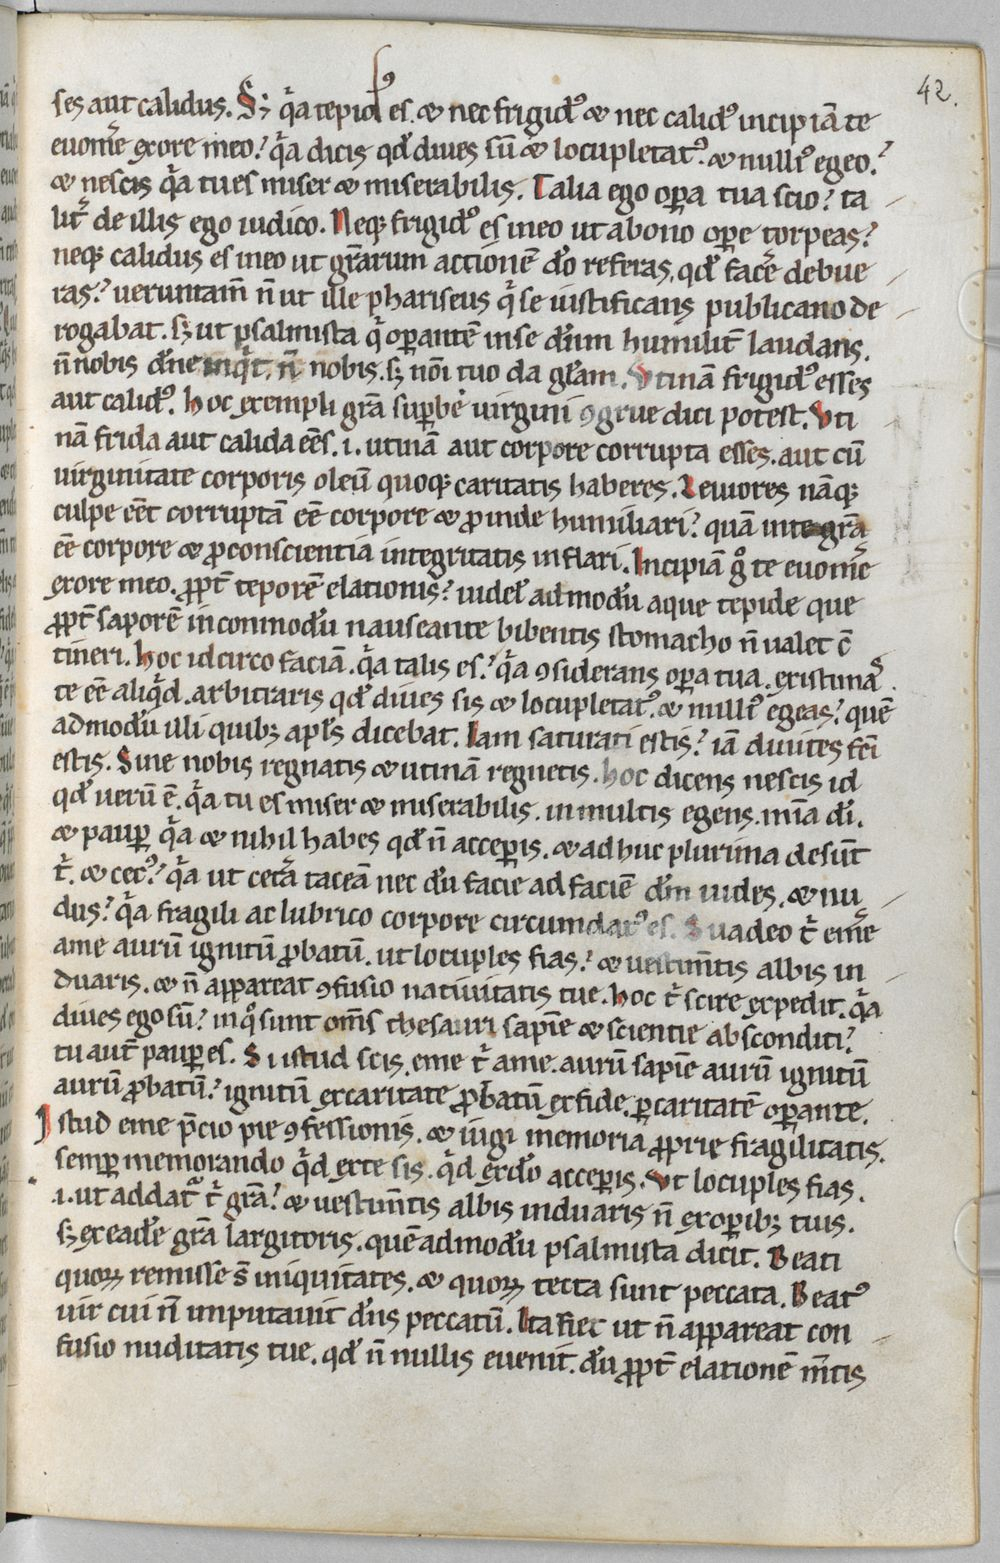 42.
ses aut calidus. Sꝫ q̇a tepid᷒ es. ⁊ nec frigid᷒ ⁊ nec calid᷒ incipiā te
euom̄e ex ore meo? q̇a dicis qđ diues sū ⁊ locupletat᷒. ⁊ nulli᷒ egeo?
⁊ nescis q̇a tu es miser ⁊ miserabilis. Talia ego oꝑa tua scio? ta
lit̄ de illis ego iudico. Neqꝫ frigid᷒ es in eo ut a bono oꝑe torpeas?
neqꝫ calidus es in eo ut grārum actionē do̅ referas, qđ facēe debue
ras? ueruntam̄ n̄ ut ille phariseus q̇ se iustificans publicano de
rogabat. sꝫ ut psalmista q̇ operantē in se dn̄um humilit̄ laudans.
n̄ nobis dn̄e inq̇t. n̄ nobis. sꝫ nōi tuo da glāam. Vtinā frigid᷒ esses
aut calid᷒. hoc exempli grā suꝑbe uirgini ꝯgrue dici potest. Vti
nā frida aut calida eēs. i. utinā aut corpore corrupta esses. aut cū
uirginitate corporis oleū quoqꝫ caritatis haberes. Leuiores nāqꝫ
culpe eēt corruptā eē corpore ⁊ proinde humiliari? quā integrā
eē corpore ⁊ ꝓ conscientia integritatis inflari. Incipiā g̊ te euom̄e
ex ore meo. ꝓpt̄ teporē elationis? uidel̄ admodū aque tepide que
ꝓpt̄ saporē incommodū nauseante bibentis stomacho n̄ ualet c̄
tineri. hoc idcirco faciā. q̇a talis es? q̇a ꝯsiderans oꝑa tua. existimās
te eē aliq̇d. arbitraris qđ diues sis ⁊ locupletat᷒. ⁊ nulli᷒ egeas? quē
admodū illi quibꝫ apl̄s dicebat. Iam saturati estis? iā diuites fc̄i
estis. Sine nobis regnatis ⁊ utinā regnetis. hoc dicens nescis id
qđ uerū ē. q̇a tu es miser ⁊ miserabilis. in multis egens. mīa dī.
⁊ pauꝑ q̇a ⁊ nihil habes qđ n̄ acceꝑis. ⁊ adhuc plurima desūt
t̄. ⁊ cec᷒? q̇a ut cetā taceā nec dū facie ad faciē dm̄ uides. ⁊ nu
dus? q̇a fragili ac lubrico corpore circumdat᷒ es. Suadeo t̄ em̄e
a me aurū ignitū ꝓbatū. ut locuples fias? ⁊ uestim̄tis albis in
duaris. ⁊ n̄ appareat ꝯfusio natiuitatis tue. hoc t̄ scire expedit. q̇a
diues ego sū? in q̊ sunt om̄s thesauri sapīe ⁊ scientie absconditi?
tu aut̄ pauꝑ es. Si istud scis, eme t̄ a me. aurū sapīe aurū ignitū
aurū ꝓbatū? ignitū ex caritate ꝓbatū ex fide. ꝑ caritatē operante.
Istud eme p̄cio pie ꝯfessionis. ⁊ iugi memoria ꝓprie fragilitatis.
semꝑ memorando q̇d ex te sis. q̇d ex do̅ acceꝑis. Vt locuples fias.
.i. ut addat᷑ t̄ grā? ⁊ uestim̄tis albis induaris n̄ ex oꝑibꝫ tuis.
sꝫ ex eade̅ grā largitoris. quēadmodū psalmista dicit. Beati
quoꝝ remisse s̄ iniquitates. ⁊ quoꝝ tecta sunt peccata. Beat᷒
uir cui n̄ imputauit dn̄s peccatū. Ita fiet ut n̄ appareat con
fusio nuditatis tue. qđ n̄ nullis euenit. dū ꝓpt̄ elationē m̄tis